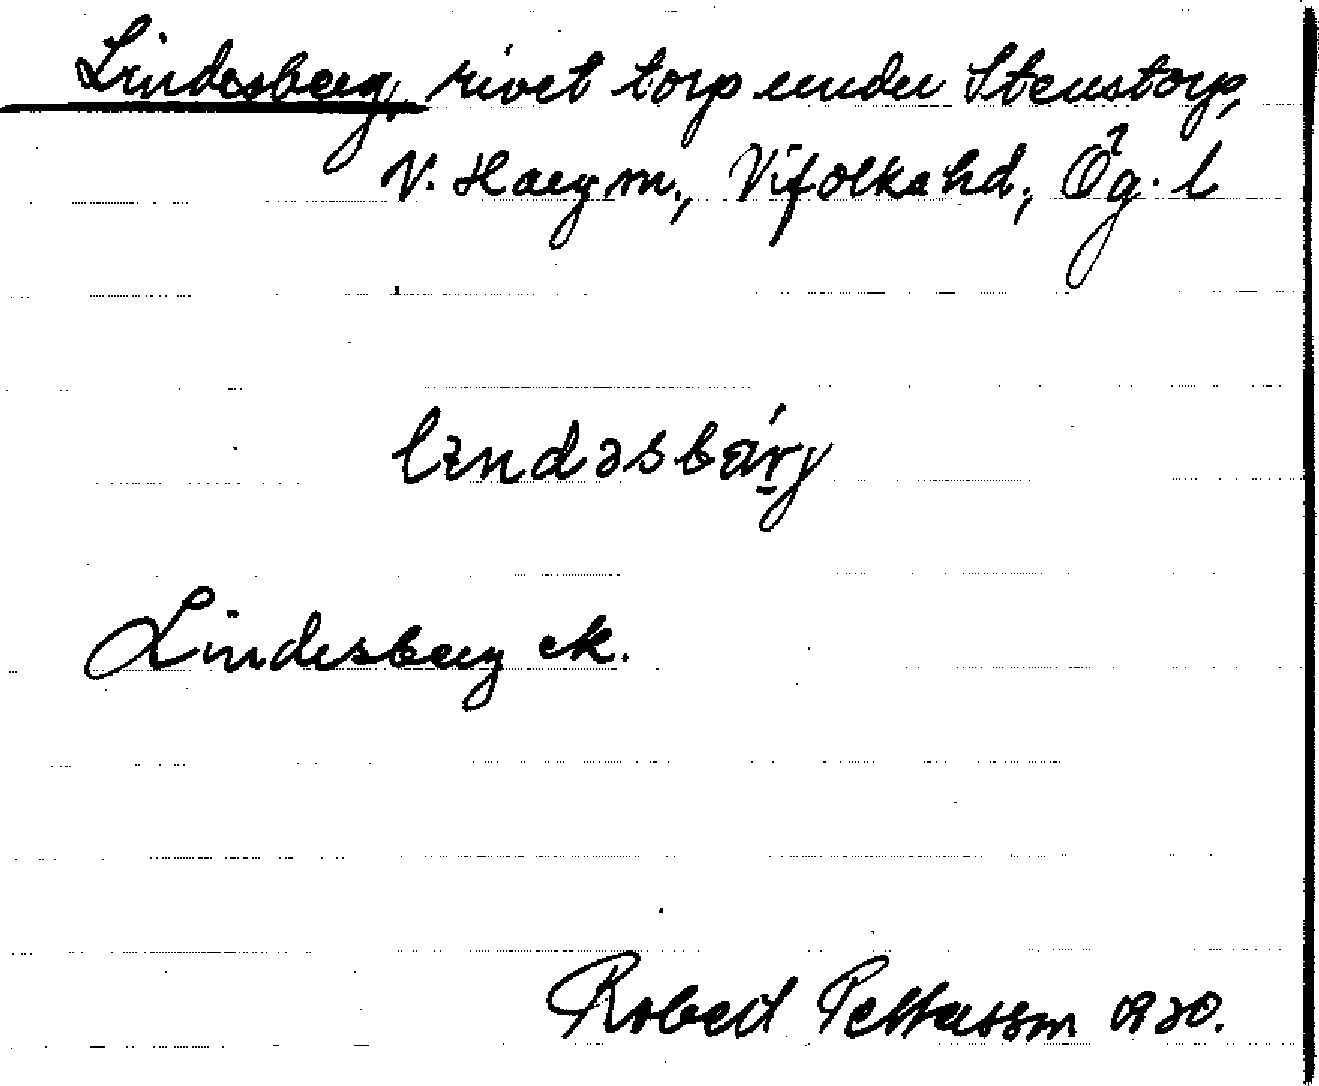 Lindesberg, rivet torp under Stenstorp,
V. Harg sn., Vifolka hd, Ög. l
lındəsbárj
Lindesberg ek.
Robert Pettersson 1920.